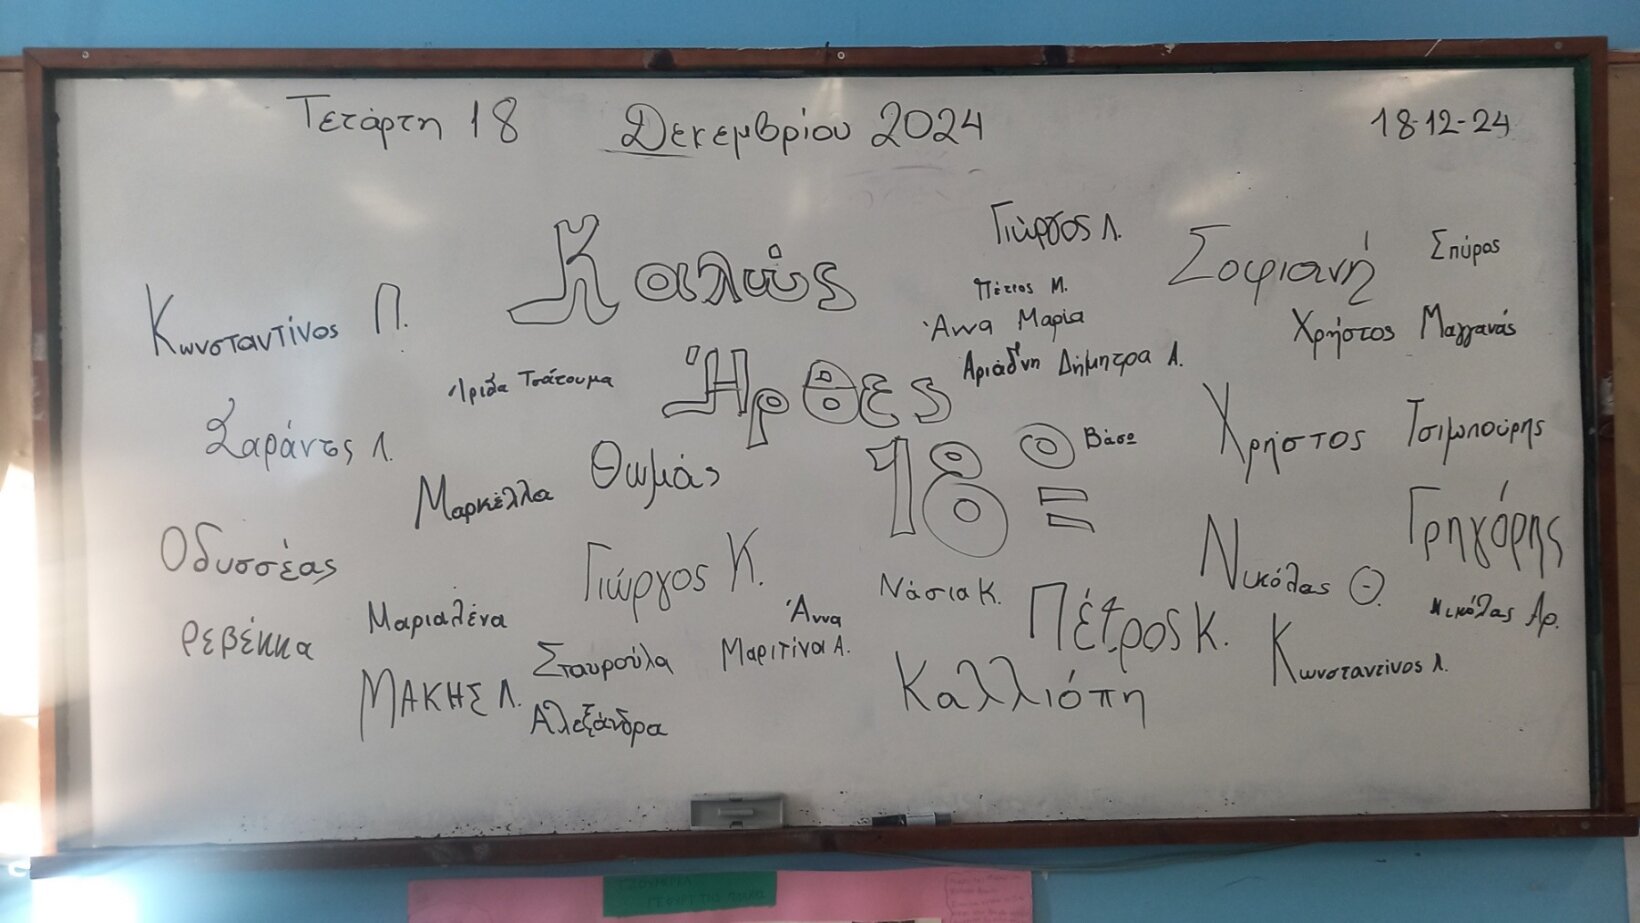 Τετάρτη 18 Δεκεμβρίου 2024
18-12-24
Καλώς
Ήρθες
18 =
Γιώργος Λ.
Σοφιανή
Σπύρος
Κωνσταντίνος Π.
Πέτρος Μ.
Άννα Μαρία
Χρήστος Μαγγανάς
Ίριδα Τσάτουμα
Αριάδνη Δήμητρα Λ.
Σαράντος Λ.
Μαρκέλλα
Θωμάς
Βάσω
Χρήστος Τσιμπούρης
Οδυσσέας
Γιώργος Κ.
Νάσια Κ.
Νικόλας Θ.
Γρηγόρης
Ρεβέκκα
Μαριαλένα
Άννα
Πέτρος Κ.
Νικόλας Αρ.
Σταυρούλα
Μαριτίνα Α.
Κωνσταντίνος Λ.
ΜΑΚΗΣ Λ.
Αλεξάνδρα
Καλλιόπη